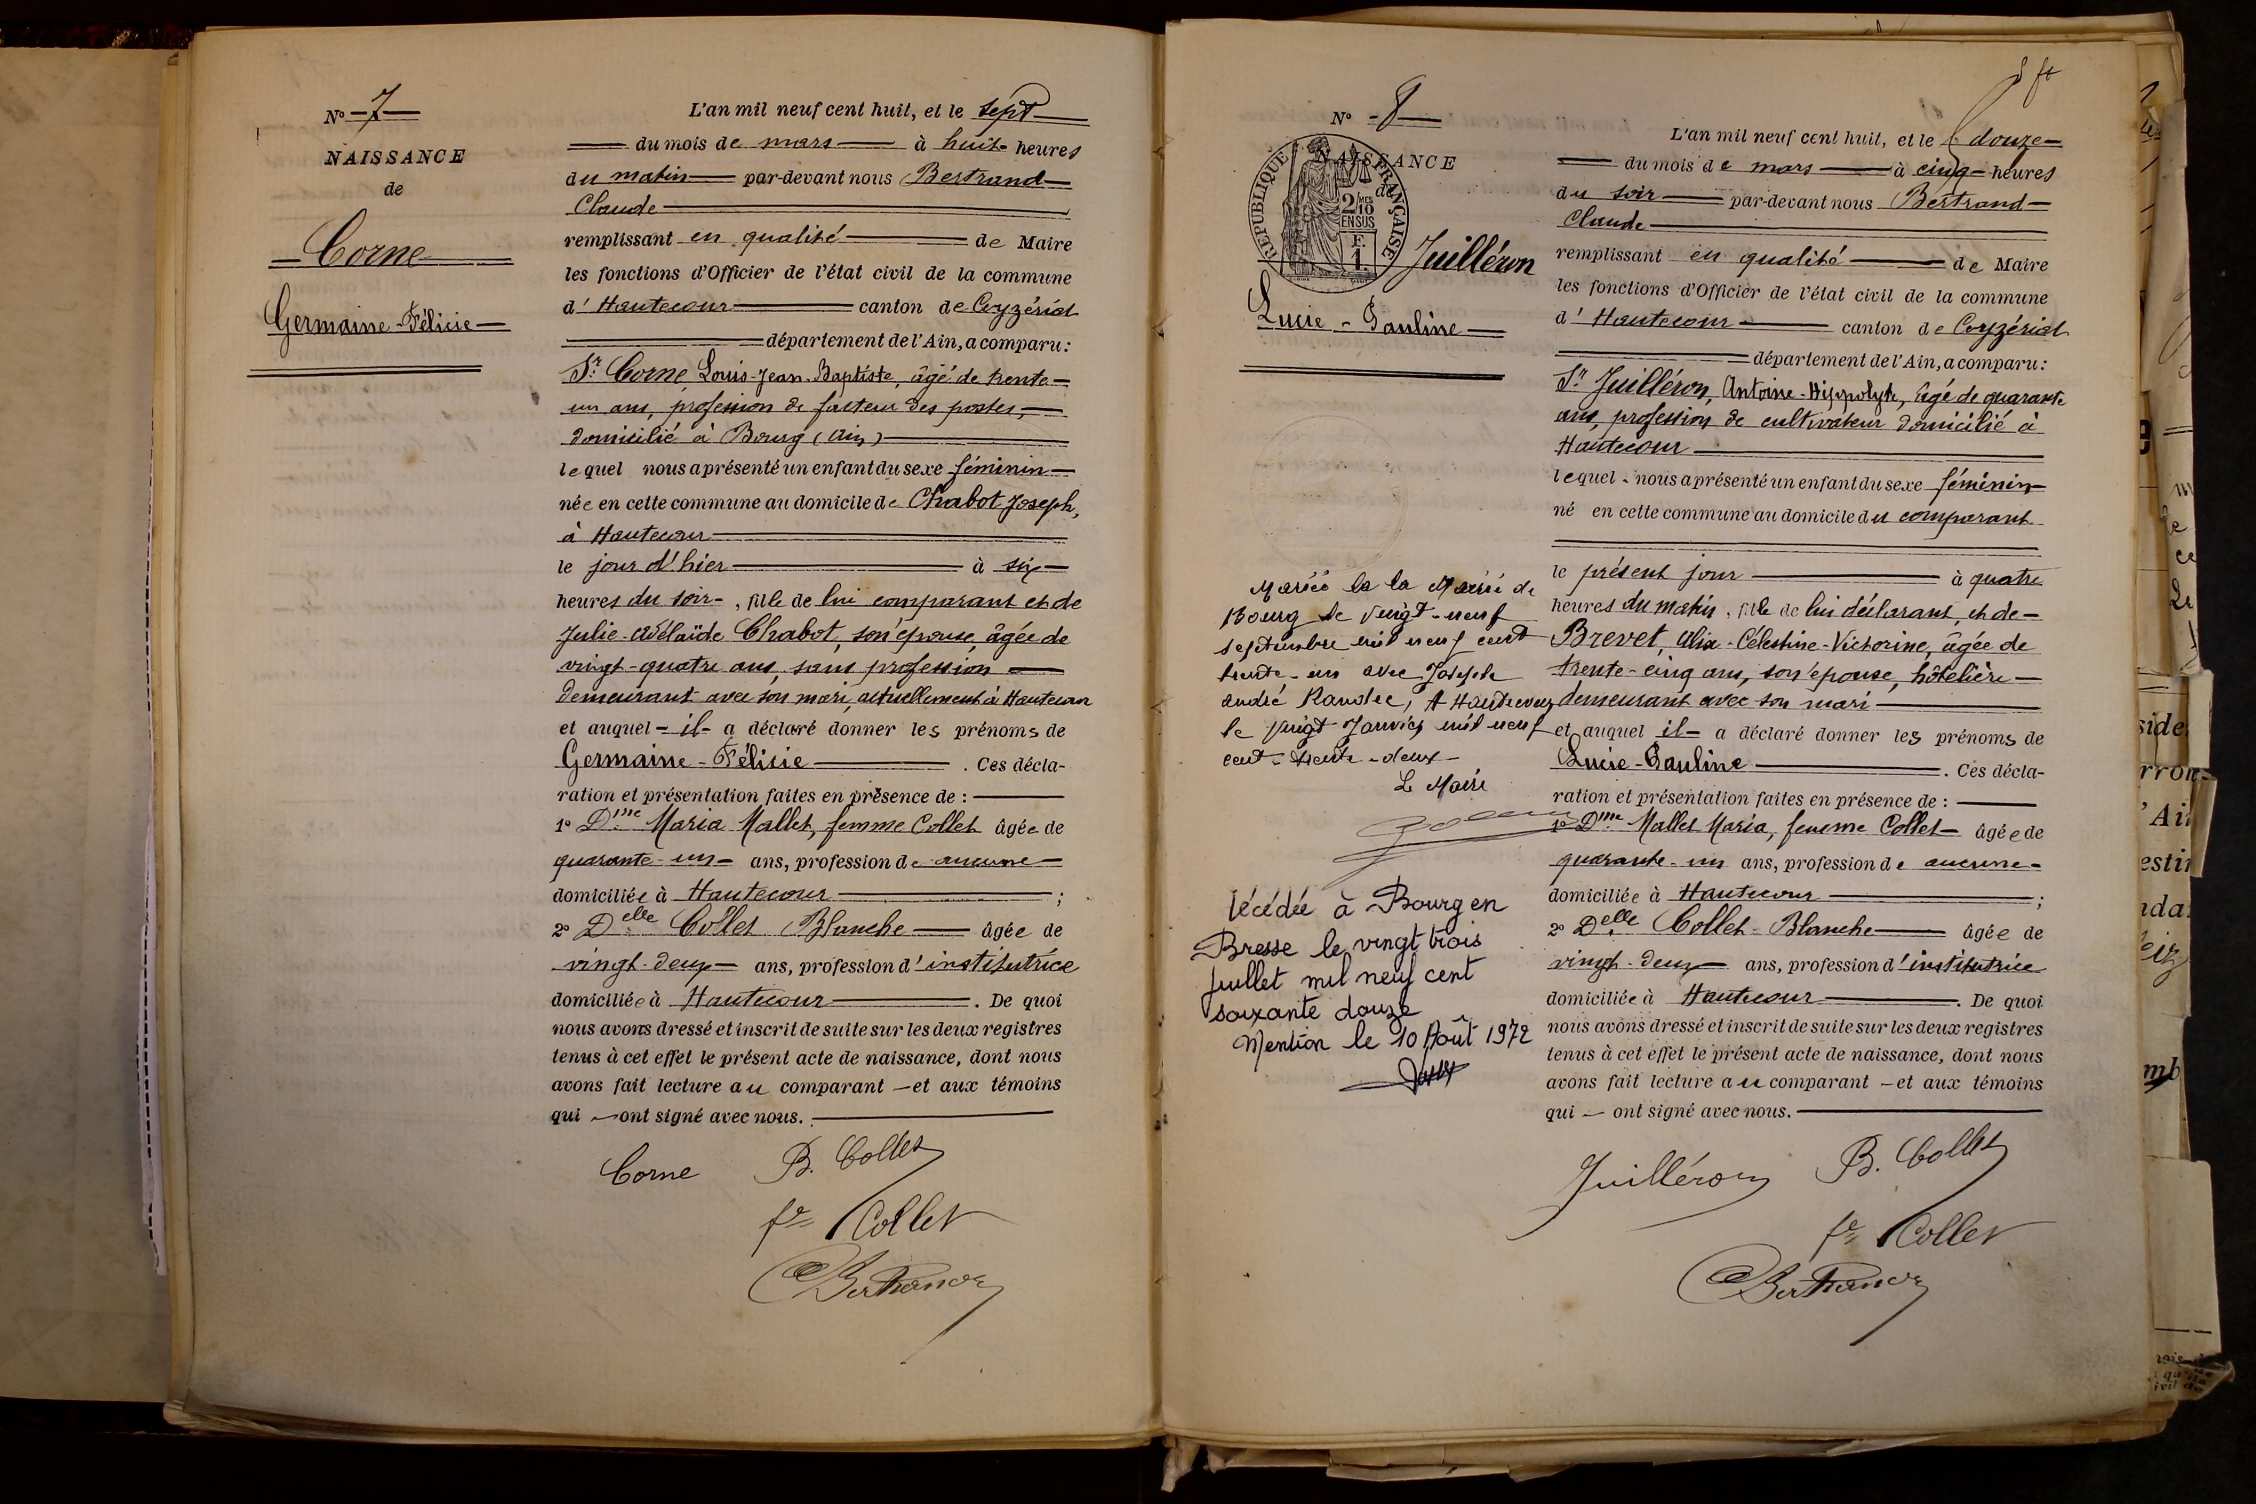 N° 7
NAISSANCE
de
Corne
Germaine-Félicie
L'an mil neuf cent huit, et le sept
du mois de mars à huit heures
du matin par-devant nous Bertrand
Claude
remplissant en qualité de Maire
les fonctions d'Officier de l'état civil de la commune
d'Hautecour canton de Ceyzériat
département de l'Ain, a comparu :
Sr Corne, Louis-Jean-Baptiste, âgé de trente-
un ans, profession de facteur des postes,
domicilié à Bourg (Ain)
lequel nous a présenté un enfant du sexe féminin
née en cette commune au domicile de Chabot Joseph,
à Hautecour
le jour d'hier à six
heures du soir, fille de lui comparant et de
Julie-Adélaïde Chabot, son épouse, âgée de
vingt-quatre ans, sans profession
demeurant avec son mari, actuellement à Hautecour
et auquel il a déclaré donner les prénoms de
Germaine-Félicie. Ces décla-
ration et présentation faites en présence de :
1° Dme Maria Mallet, femme Collet âgée de
quarante-un ans, profession de aucune
domiciliée à Hautecour ;
2° Delle Collet Blanche âgée de
vingt-deux ans, profession d'institutrice
domiciliée à Hautecour. De quoi
nous avons dressé et inscrit de suite sur les deux registres
tenus à cet effet le présent acte de naissance, dont nous
avons fait lecture au comparant et aux témoins
qui ont signé avec nous.
Corne B. Collet
fe Collet
CBertrand
N° 8
NAISSANCE
de
RÉPUBLIQUE FRANÇAISE
2/10
EN SUS
F.
1.
Juilléron
Lucie-Pauline
L'an mil neuf cent huit, et le douze
du mois de mars à cinq heures
du soir par-devant nous Bertrand
Claude
remplissant en qualité de Maire
les fonctions d'Officier de l'état civil de la commune
d'Hautecour canton de Ceyzériat
département de l'Ain, a comparu :
Sr Juilléron, Antoine-Hippolyte, âgé de quarante
ans, profession de cultivateur domicilié à
Hautecour
lequel nous a présenté un enfant du sexe féminin
né en cette commune au domicile du comparant
le présent jour à quatre
heures du matin, fille de lui déclarant, et de
Brevet, Alix-Célestine-Victorine, âgée de
trente-cinq ans, son épouse, hôtelière
demeurant avec son mari
et auquel il a déclaré donner les prénoms de
Lucie-Pauline. Ces décla-
ration et présentation faites en présence de :
1° Dme Mallet Maria, femme Collet âgée de
quarante-un ans, profession de aucune
domiciliée à Hautecour ;
2° Delle Collet-Blanche âgée de
vingt-deux ans, profession d'institutrice
domiciliée à Hautecour. De quoi
nous avons dressé et inscrit de suite sur les deux registres
tenus à cet effet le présent acte de naissance, dont nous
avons fait lecture au comparant et aux témoins
qui ont signé avec nous.
Juilléron B. Collet
fe Collet
CBertrand
Mariée la la Mairie de
Bourg le vingt-neuf
septembre mil neuf cent
trente-un avec Joseph
André, A Hautecour
le vingt Janvier mil neuf
cent-trente-deux-
Le Maire
Décédée à Bourg en
Bresse le vingt trois
Juillet mil neuf cent
soixante douze
Mention le 10 Août 1972